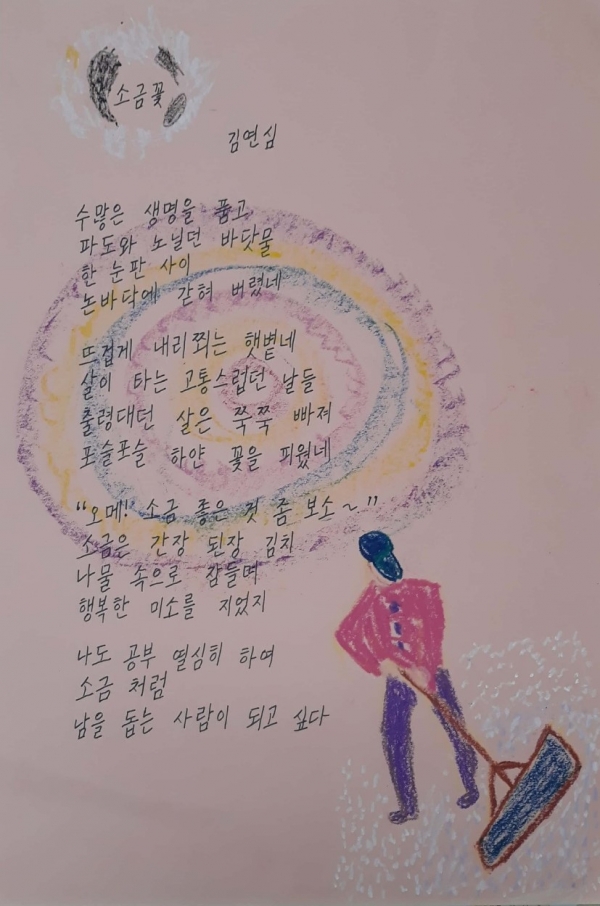 소금꽃
김연심
수많은 생명을 품고
파도와 노닐던 바닷물
한 눈판 사이
논바닥에 갇혀 버렸네
뜨겁게 내리쬐는 햇볕네
살이 타는 고통스럽던 날들
출렁대던 살은 쭉쭉 빠져
포슬포슬 하얀 꽃을 피웠네
“오메! 소금 좋은 것 좀 보소~”
소금은 간장 된장 김치
나물 속으로 잠들며
행복한 미소를 지었지
나도 공부 열심히 하여
소금 처럼
남을 돕는 사람이 되고 싶다